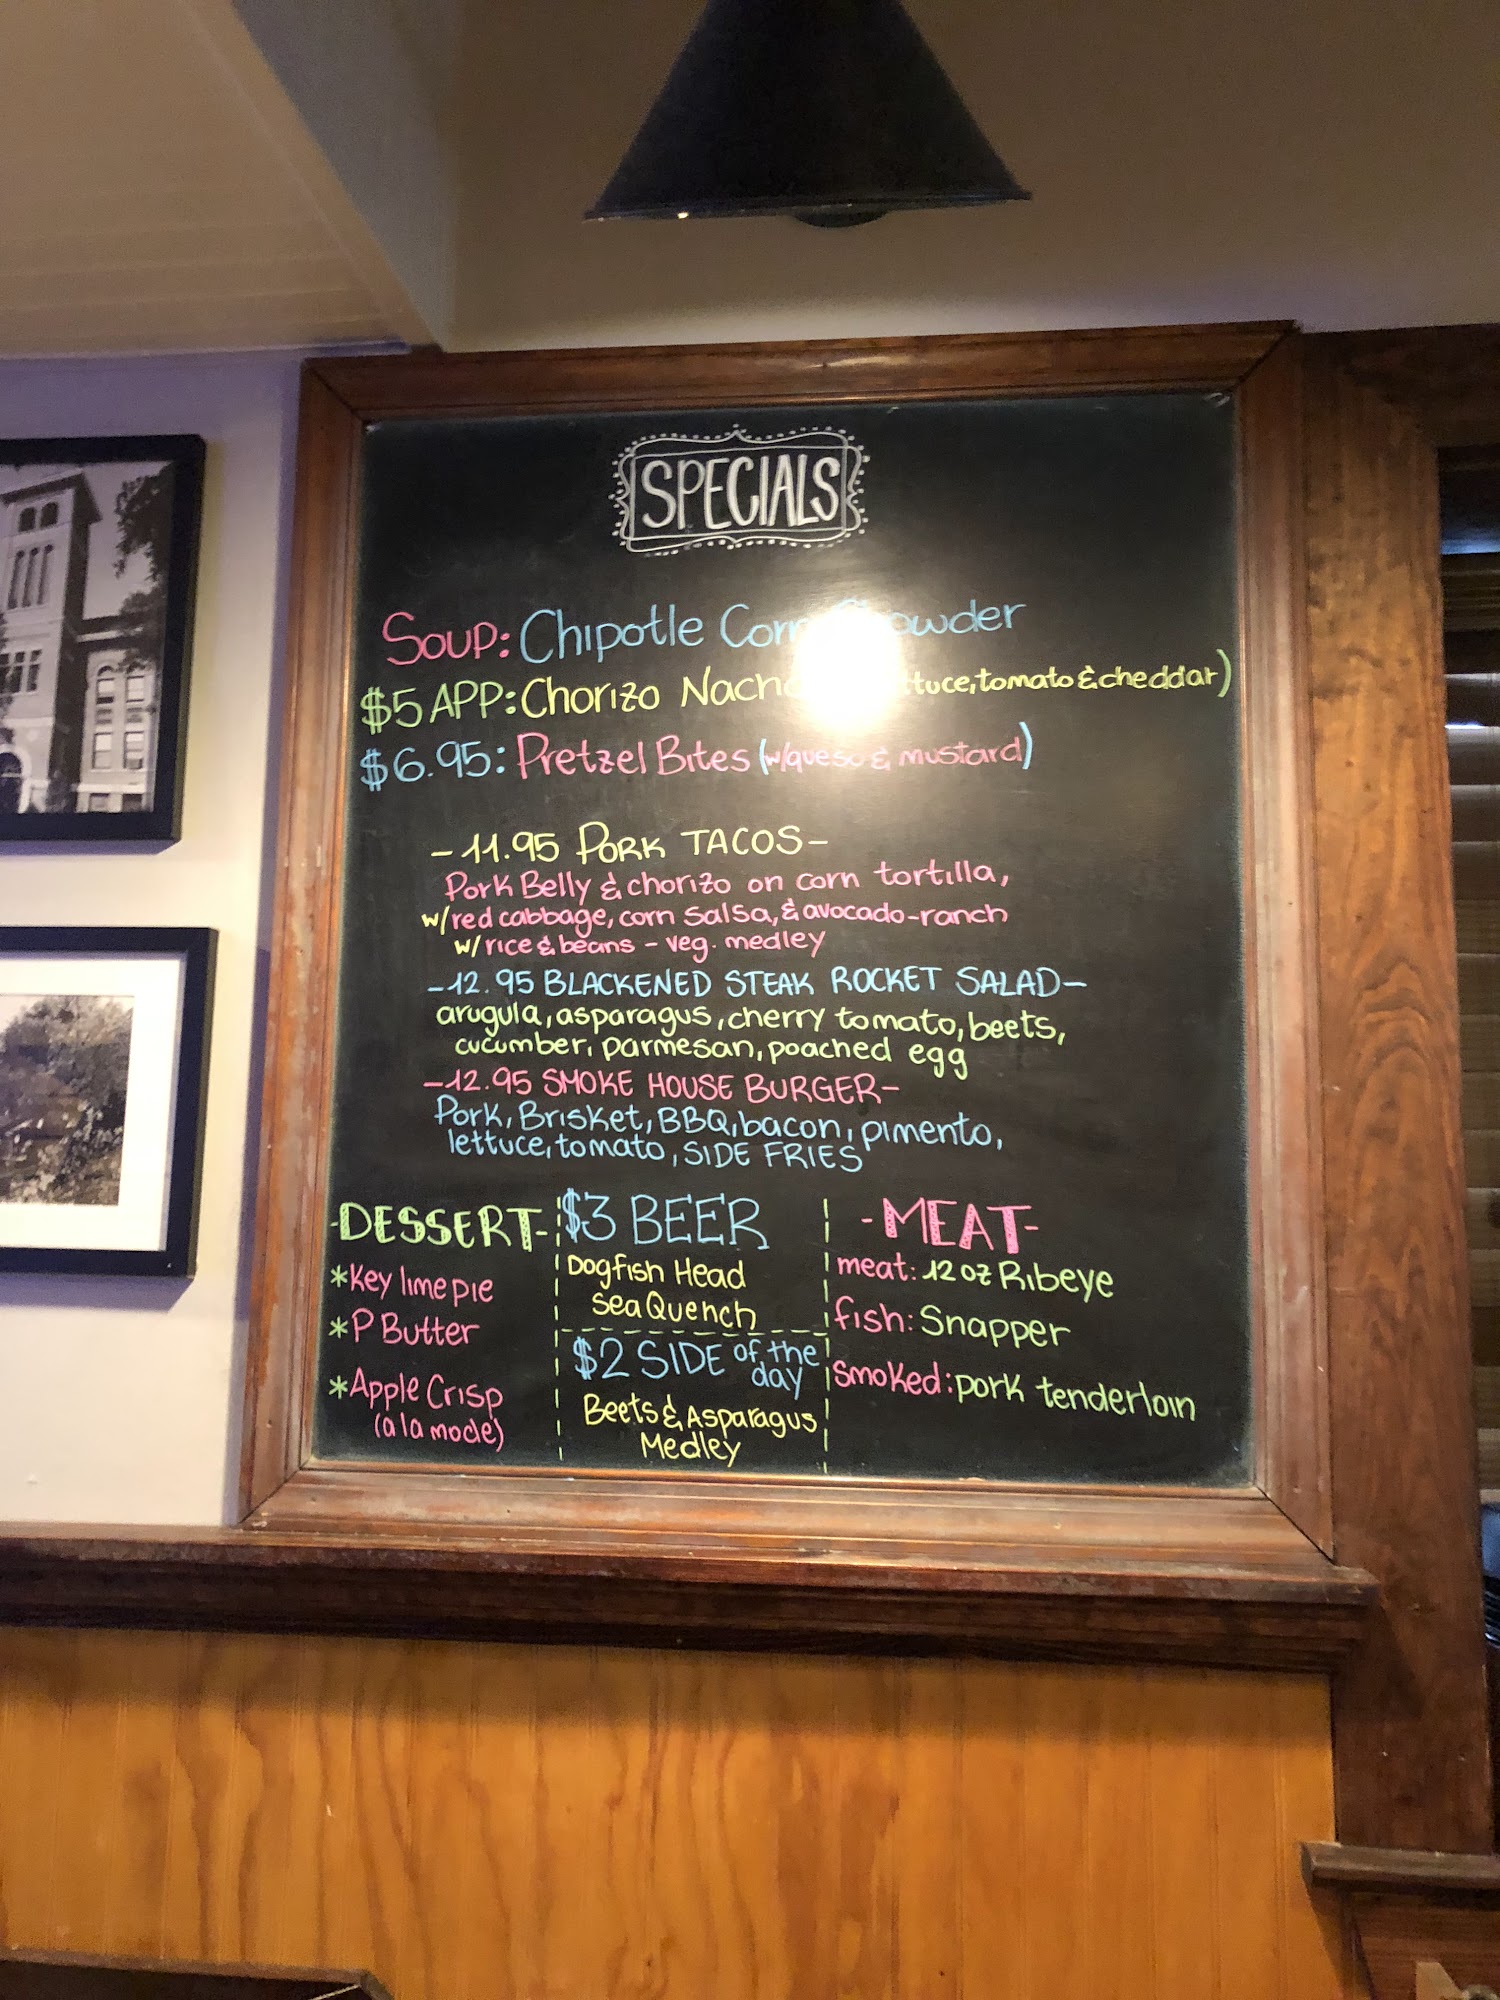 SPECIALS
Soup: Chipotle owder
$5 APP: Chorizo tomato & cheddar)
$6.95: Pretzel Bites (w/queso & mustard)
-11.95 PORK TACOS-
Pork Belly & chorizo on corn tortilla,
w/red cabbage, corn salsa, & avocado-ranch
w/rice & beans - veg. medley
-12.95 BLACKENED STEAK ROCKET SALAD-
arugula, asparagus, cherry tomato, beets,
cucumber, parmesan, poached egg
-12.95 SMOKE HOUSE BURGER-
Pork, Brisket, BBQ, bacon, pimento,
lettuce, tomato, SIDE FRIES
-DESSERT-
*Key lime pie
*P Butter
*Apple Crisp
(a la mode)
$3 BEER
Dogfish Head
SeaQuench
$2 SIDE of the
day
Beets & Asparagus
Medley
-MEAT-
meat: 12 oz Ribeye
fish: Snapper
smoked: pork tenderloin